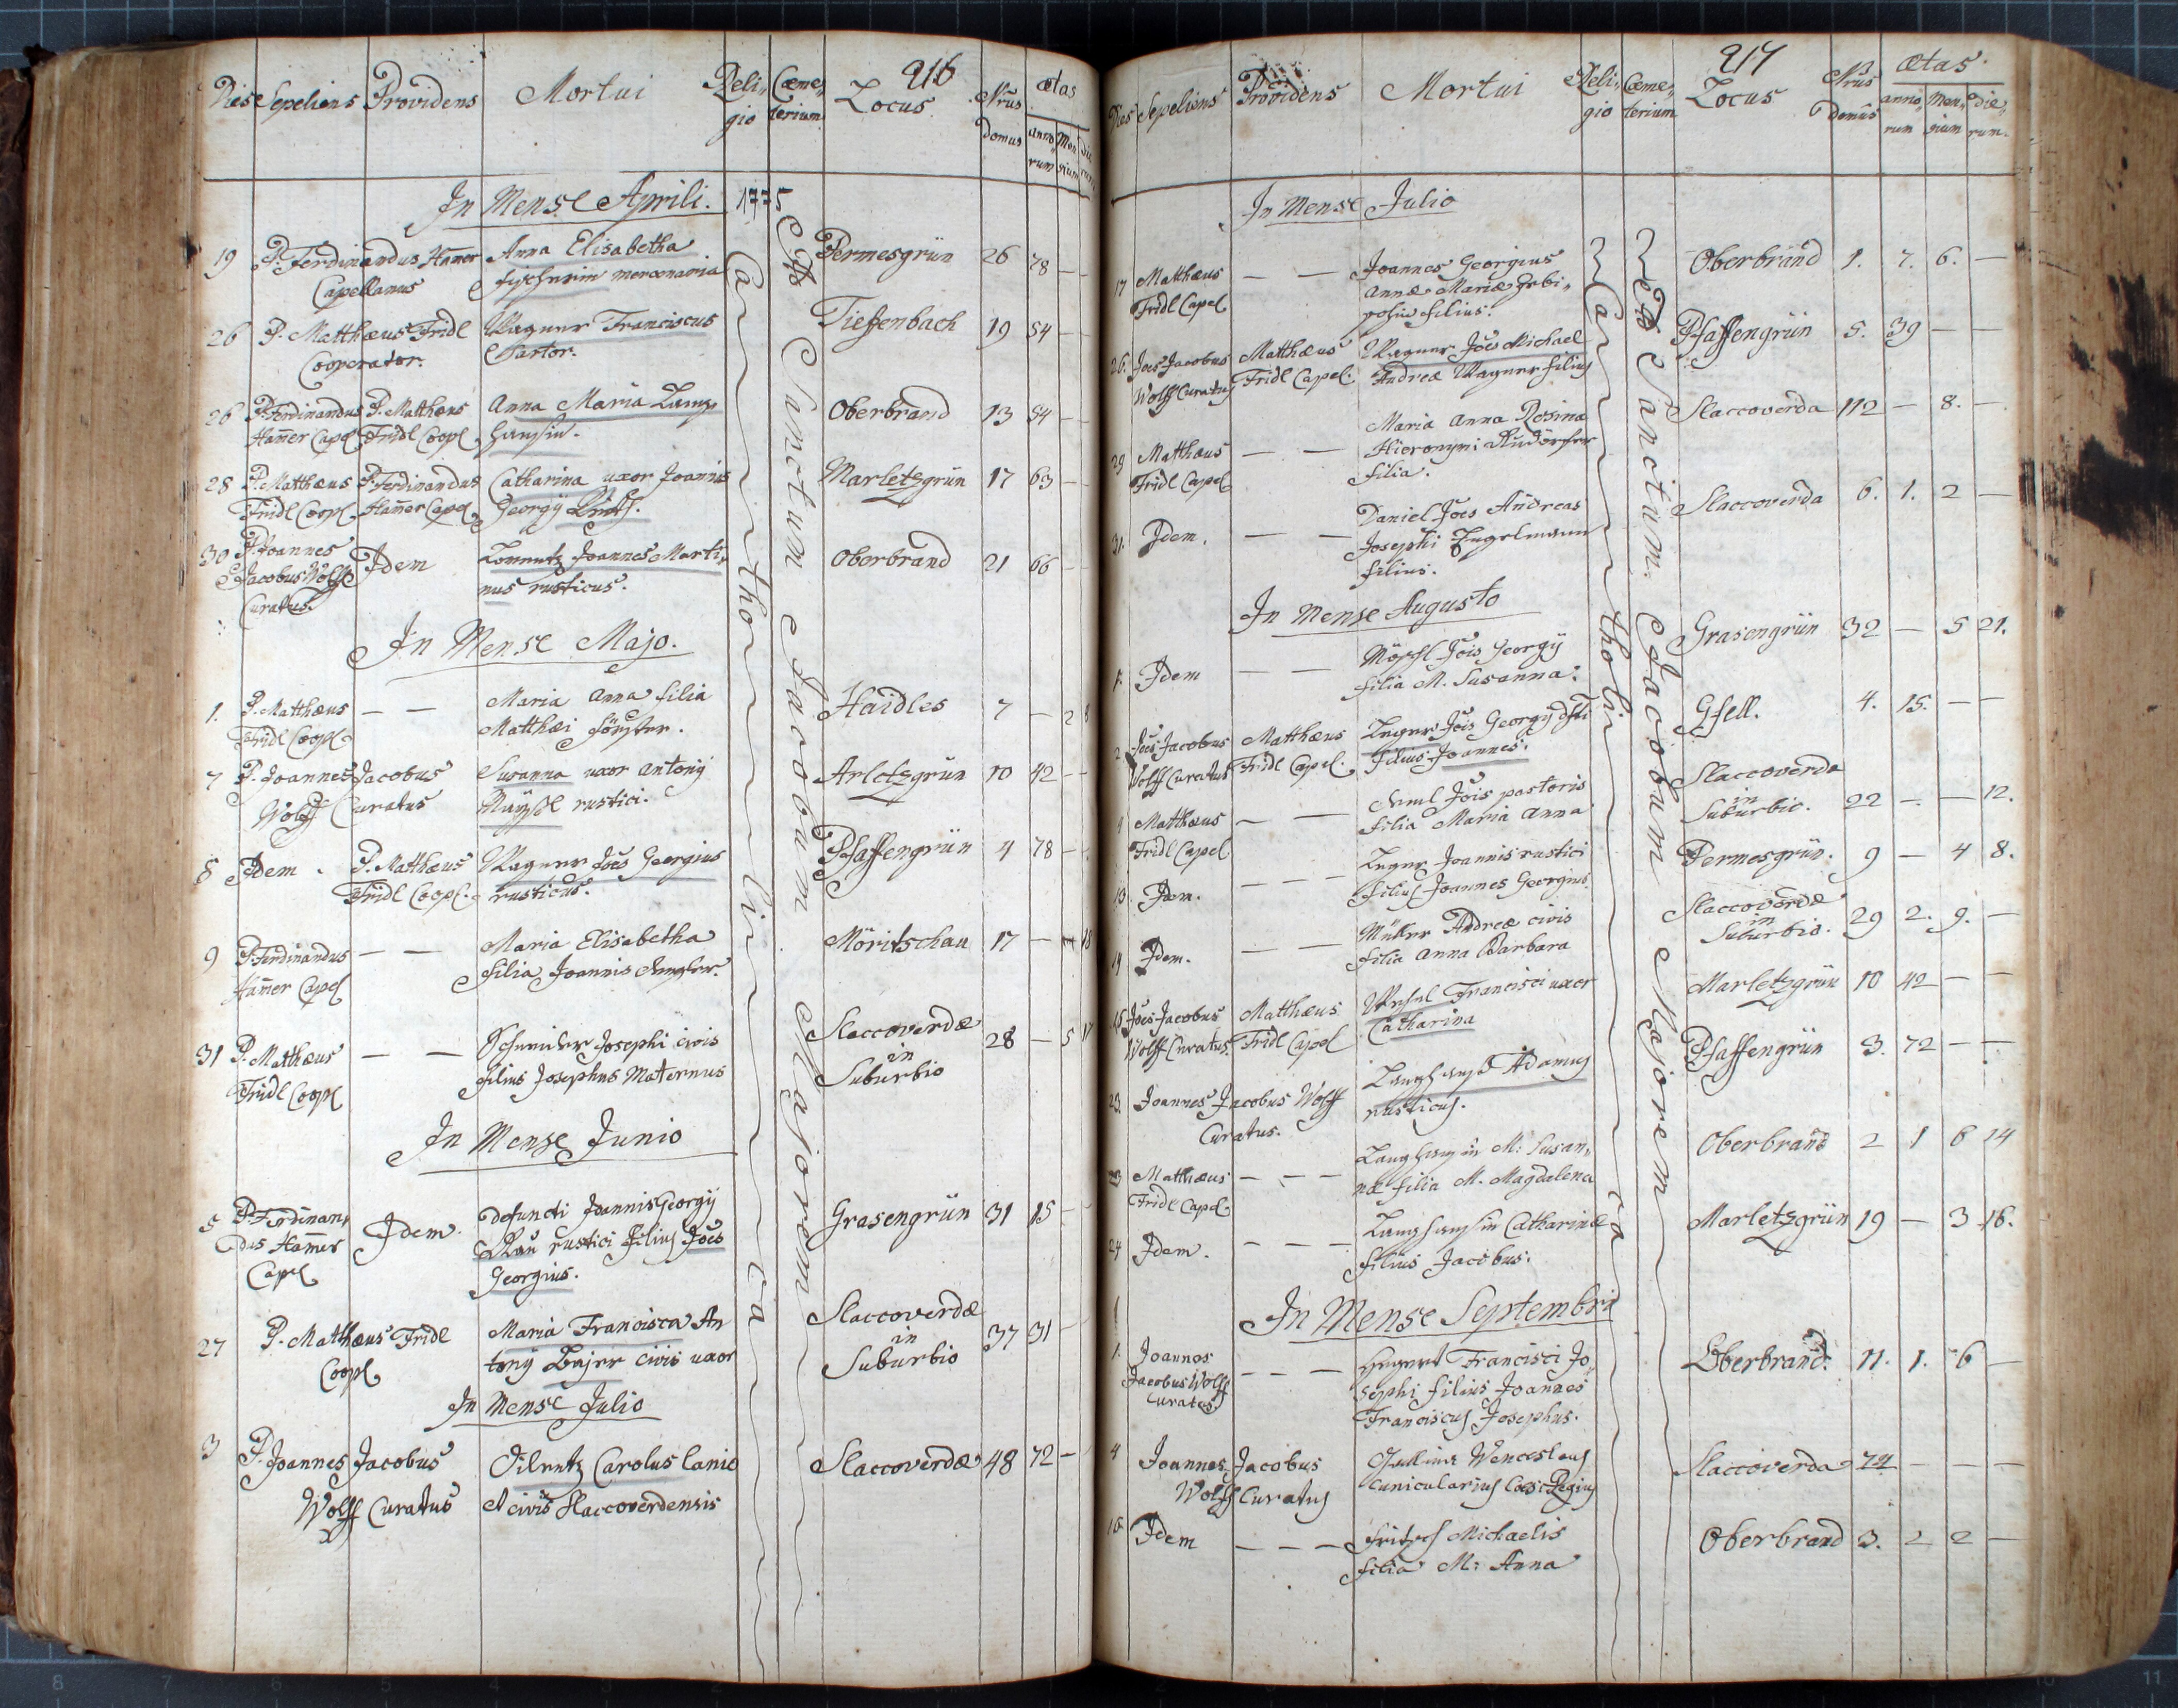 216
Dies Sepeliens Providens Mortui Reli- Cœme- Locus Nrus ætas
gio terium Domus anno- Men- die-
rum sium rum
In Mense Aprili. 1775
19 P. Ferdinandus Ham̄er Anna Elisabetha Permesgrün 26 78 —
Capellanus mercenaria
26 P. Matthæus Fridl Wagner Franciscus Tieffenbach 19 54 —
Cooperator. Sartor.
26 P. Ferdinandus P. Matthæus Anna Maria Lang- Oberbrand 13 54 —
Ham̄er Capel Fridl Coopl hansin.
28 P. Matthæus P. Ferdinandus Catharina uxor Joannis Marletzgrün 17 63 —
Fridl Coopl Ham̄er Capel Georgÿ
30 P. Joannes Idem Lorentz Joannes Marti- Oberbrand 21 66 —
Jacobus Wolff nus rusticus.
Curatus.
In Mense Majo.
1. P. Matthæus — — Maria Anna filia Haidles 7 — 2 8
Fridl Coopl Matthæi Förster.
7 P. Joannes Jacobus Susanna uxor Antonÿ Arletzgrün 10 42 — —
Wolff Curatus rustici.
8 Idem. P. Matthæus Wagner Jões Georgius Pfaffengrün 4 78 —
Fridl Coopl. rusticus.
9 P. Ferdinandus — — Maria Elisabetha Möritschau 17 — 18
Ham̄er Capel filia Joannis
31 P. Matthæus — — Schneider Josephi civis Slaccoverdæ 28 — 5 17
Fridl Coopl filius Josephus Maternus in
Suburbio
In Mense Junio
5 P. Ferdinan- Idem. Defuncti Joannis Georgÿ Grasengrün 31 15 —
dus Ham̄er Rau rustici Filius Jões
Capel Georgius.
27 P. Matthæus Fridl Maria Francisca An Slaccoverdæ 37 31 —
Coopl tonÿ civis uxor in
Suburbio
In Mense Julio
3 P. Joannes Jacobus Carolus lanio Slaccoverdæ 48 72 —
Wolff Curatus et civis Slaccoverdensis
Ca tho li ca
Ad Sanctum Jacobum Majorem
217
Dies Sepeliens Providens Mortui Reli- Cœme- Locus Nrus ætas
gio terium Domus anno- Men- die-
rum sium rum.
In Mense Julio
17 Matthæus — — Joannes Georgius Oberbrand 1. 7. 6. —
Fridl Capel Annæ Mariæ
filius.
26. Jões Jacobus Matthæus Wagner Jões Michael Pfaffengrün 5. 39 — —
Wolff Curatus Fridl Capel. Andreæ Wagner filius
29 Matthæus — — Maria Anna Rosina Slaccoverda 112 — 8. —
Fridl Capel Hieronymi
filia.
31. Idem. — — Daniel Jões Andreas Slaccoverda 6. 1. 2 —
Josephi Engelmann
filius.
In Mense Augusto
1. Idem — — Jõis Georgÿ Grasengrün 32 — 5 21.
filia M. Susanna.
2 Jões Jacobus Matthæus Jõis Georgÿ Gfell. 4. 15. — —
Wolff Curatus Fridl Capel. filius Joannes.
Matthæus — — Jõis pastoris Slaccoverda
Fridl Capel filia Maria Anna in
Suburbio. 22 — — 12.
10. Idem. — — — Joannis rustici Permesgrün. 9 — 4 8.
filius Joannes Georgius.
14 Idem. — — Müller Andreæ civis Slaccoverdæ
filia Anna Barbara in
Suburbio. 29 2. 9. —
15 Jões Jacobus Matthæus Francisci uxor Marletzgrün 10 42 — —
Wolff Curatus. Fridl Capel Catharina
23 Joannes Jacobus Wolff Langhans Adamus Pfaffengrün 3. 72 — —
Curatus. rusticus.
23 Matthæus — — — Langhansin M: Susan- Oberbrand 2 1 8 14
Fridl Capel. næ filia M. Magdalena
24 Idem. — — — Langhansin Catharinæ Marletzgrün 19 — 3 16.
filius Jacobus.
In Mense Septembri
1. Joannes — — — Francisci Jo- Oberbrand. 11. 1. 6 —
Jacobus Wolff sephi filius Joannes
Curatus Franciscus Josephus.
4 Joannes Jacobus Wenceslaus Slaccoverda 74 — — —
Wolff Curatus Cunicularius Cæs: Regius
Idem — — — Fritsch Michaelis Oberbrand 3. 2 2 —
filia M: Anna
Ca tholi ca
Ad Sanctum Jacobum Majorem